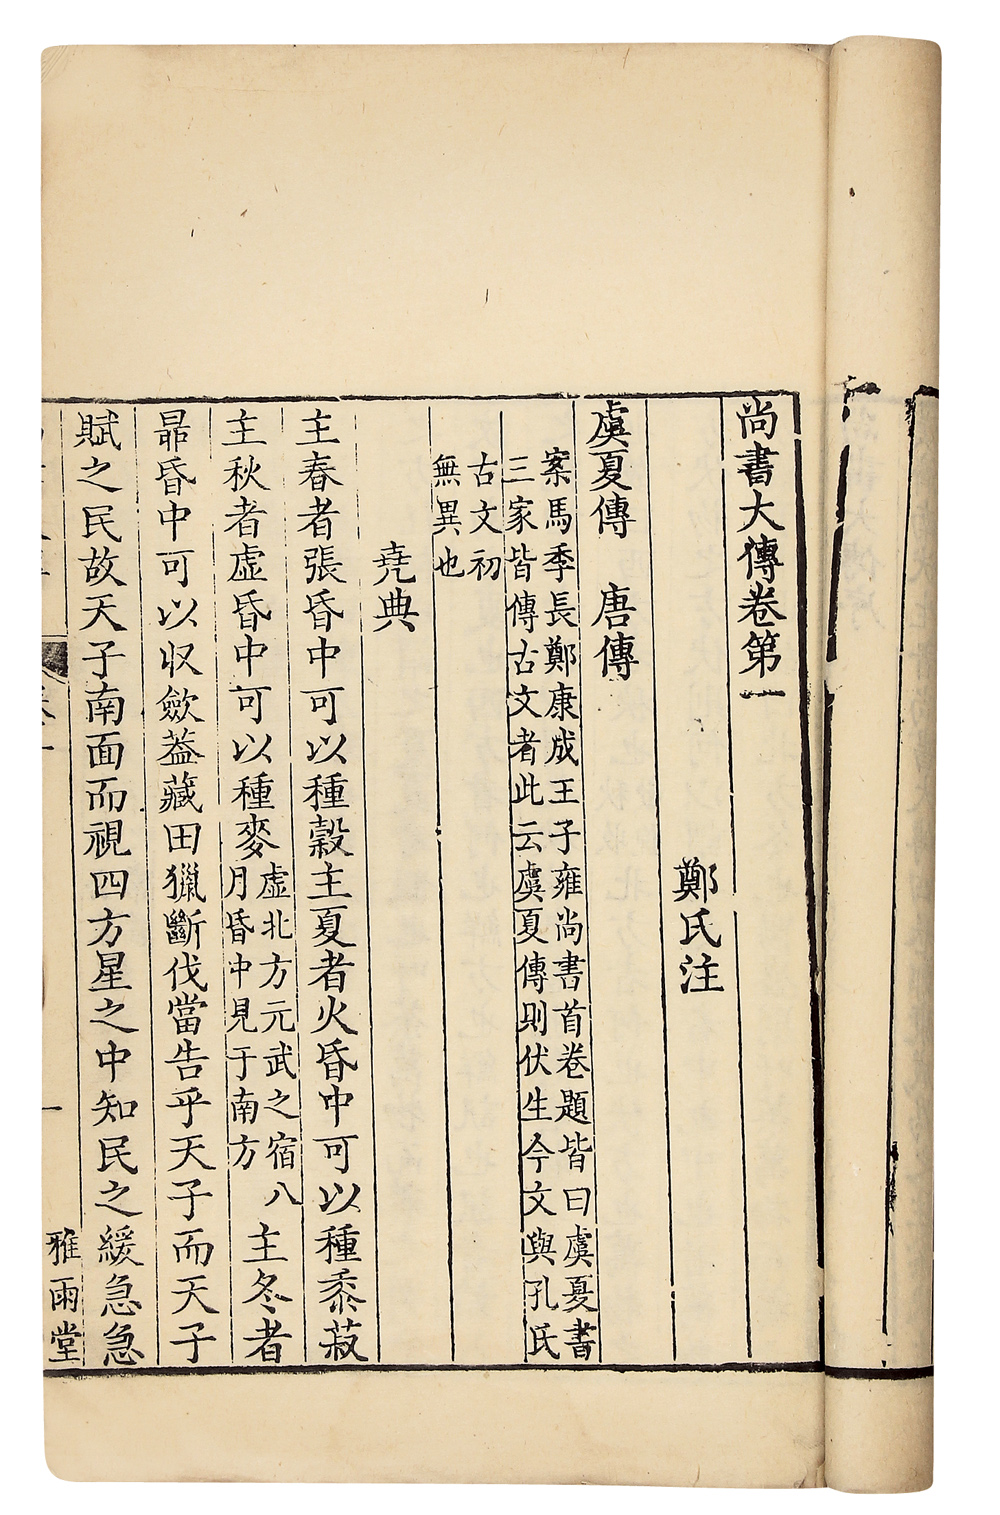 尚書大傳卷第一
鄭氏注
虞夏傳　唐傳
案馬季長鄭康成王子雍尚書首卷題皆曰虞夏書
三家皆傳古文者此云虞夏傳則伏生今文與孔氏
古文初
無異也
堯典
主春者張昏中可以種穀主夏者火昏中可以種黍菽
主秋者虛昏中可以種麥虛北方元武之宿八月昏中見于南方主冬者
昴昏中可以收斂葢藏田獵斷伐當告乎天子而天子
賦之民故天子南面而視四方星之中知民之緩急急
卷一
一
雅雨堂